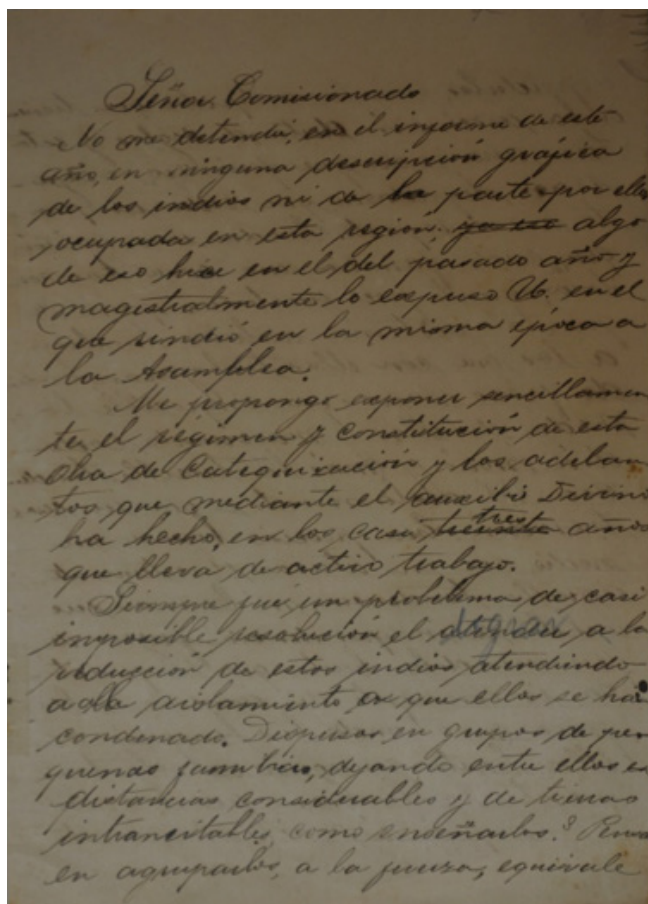 Señor Comisionado
No me detendré, en el informe de este
año, en ninguna descripción gráfica
de los indios ni de la parte por ellos
ocupada en esta región; ya eso algo
de eso hice en el del pasado año y
magistralmente lo expuso U. en el
que rindió en la misma época a
la Asamblea.
Me propongo exponer sencillamen
te el régimen y constitución de esta
obra de Catequización y los adelan
tos que, mediante el auxilio Divino
ha hecho, en los casi treinta tres años
que lleva de activo trabajo.
Siempre fue un problema de casi
imposible resolución el lograr a la
reducción de estos indios atendiendo
al aislamiento a que ellos se han
condenado. Dispersos en grupos de pe
quenas familias, dejando entre ellos
distancias considerables y de tierras
intransitables, como enseñarlos?
en agruparlos, a la fuerza, equivale